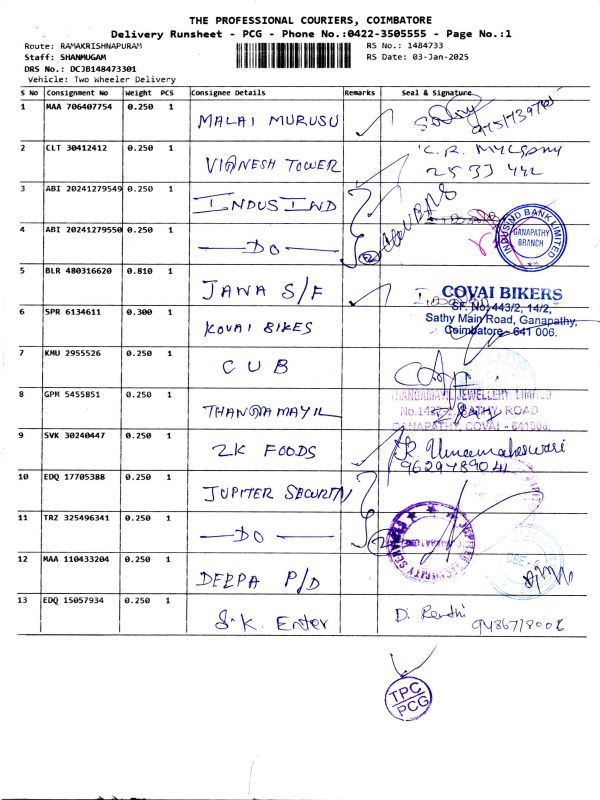 THE PROFESSIONAL COURIERS, COIMBATORE
Delivery Runsheet - PCG - Phone No.:0422-3505555 - Page No.:1
Route: RAMAKRISHNAPURAM
RS No.: 1484733
Staff: SHANMUGAM
RS Date: 03-Jan-2025
DRS No.: DCJB148473301
Vehicle: Two Wheeler Delivery
S No Consignment No Weight PCS Consignee Details Remarks Seal & Signature
1 MAA 706407754 0.250 1 MALAI MURUSU
2 CLT 30412412 0.250 1 VIGNESH TOWER
3 ABI 20241279549 0.250 1 INDUSIND
4 ABI 20241279550 0.250 1 —DO—
INDUSIND BANK LIMITED
GANAPATHY
BRANCH
5 BLR 480316620 0.810 1 JANA S/F
COVAI BIKERS
SF. No. 443/2, 14/2,
Sathy Main Road, Ganapathy,
Coimbatore - 641 006.
6 SPR 6134611 0.300 1 KOVAI BIKES
7 KMU 2955526 0.250 1 CUB
8 GPM 5455851 0.250 1 THANGAMAYIL
THANGAMAYIL JEWELLERY LIMITED
ROAD
GANAPATHY, COVAI - 641006.
9 SVK 30240447 0.250 1 2K FOODS R. Umamaheswari
9629489041
10 EDQ 17705388 0.250 1 JUPITER SECURITY
11 TRZ 325496341 0.250 1 —DO—
12 MAA 110433204 0.250 1 DEEPA P/D
13 EDQ 15057934 0.250 1 S.K. Enter
TPC
PCG